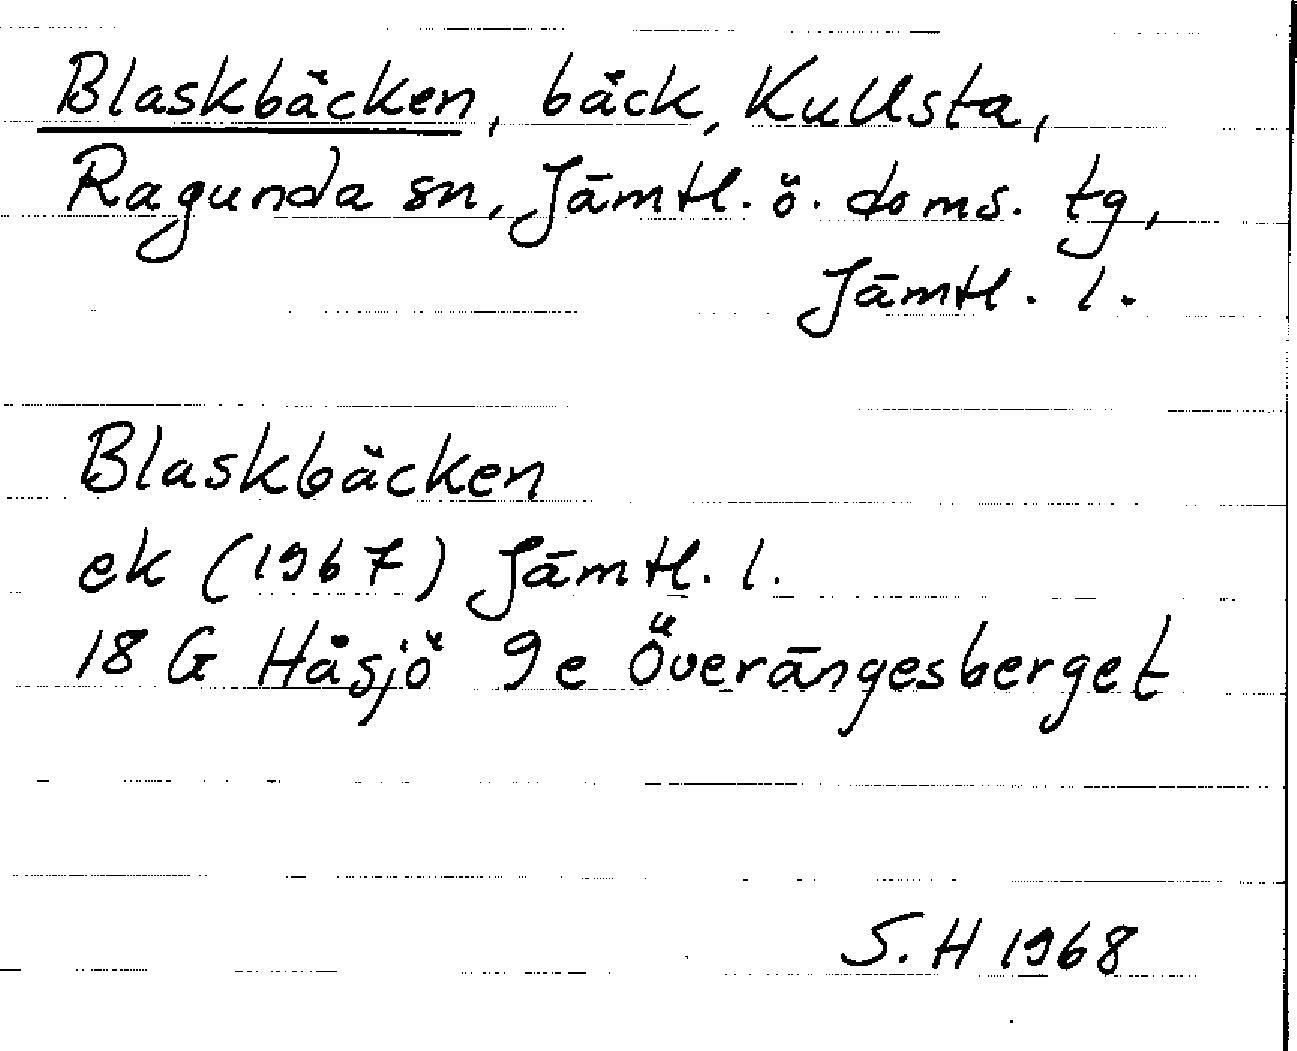 Blaskbäcken, bäck, Kullsta,
Ragunda sn, Jämtl. ö. doms. tg,
Jämtl. l.
Blaskbäcken
ek (1967) Jämtl. l.
18 G Håsjö 9e Överängesberget
S. H 1968